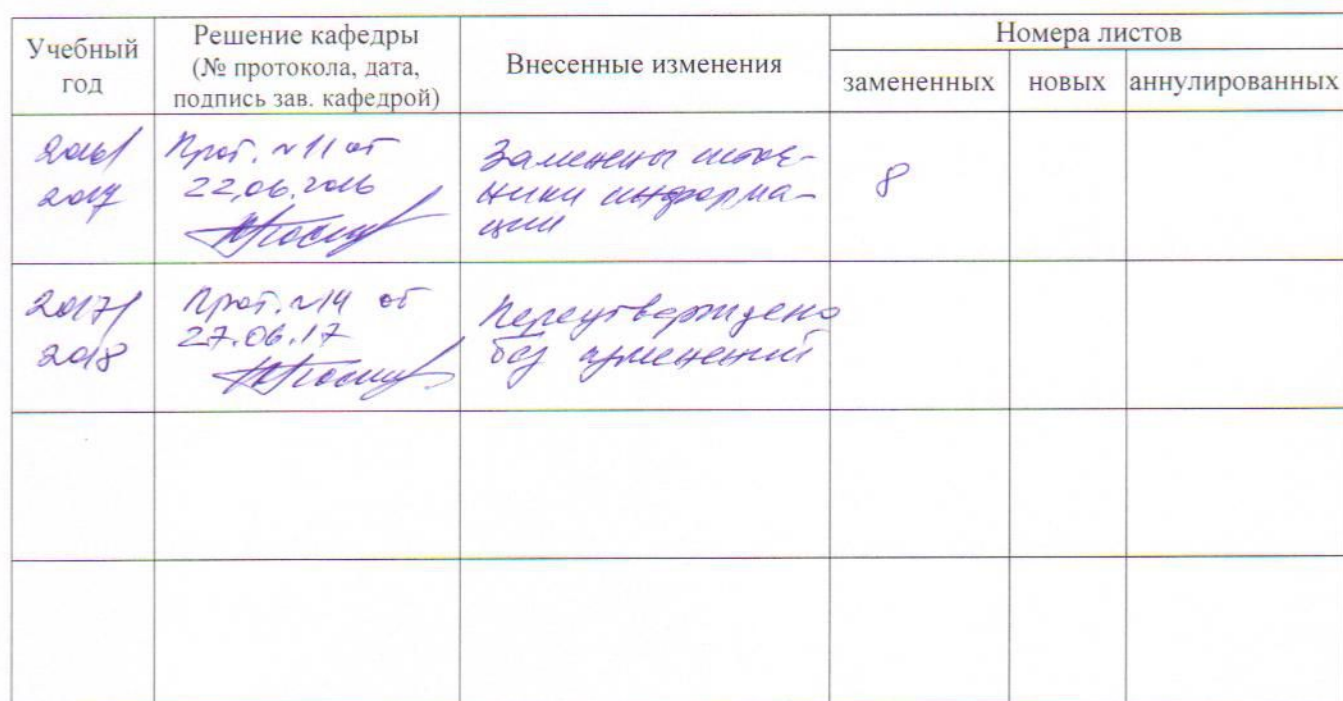 Учебный год
Решение кафедры
(№ протокола, дата,
подпись зав. кафедрой)
Внесенные изменения
Номера листов
замененных
новых
аннулированных
2016/
2017
Прот. №11 от
22.06.2016
Заменены источ-
ники информа-
ции
8
2017/
2018
Прот. №14 от
27.06.17
Переутверждено
без изменений